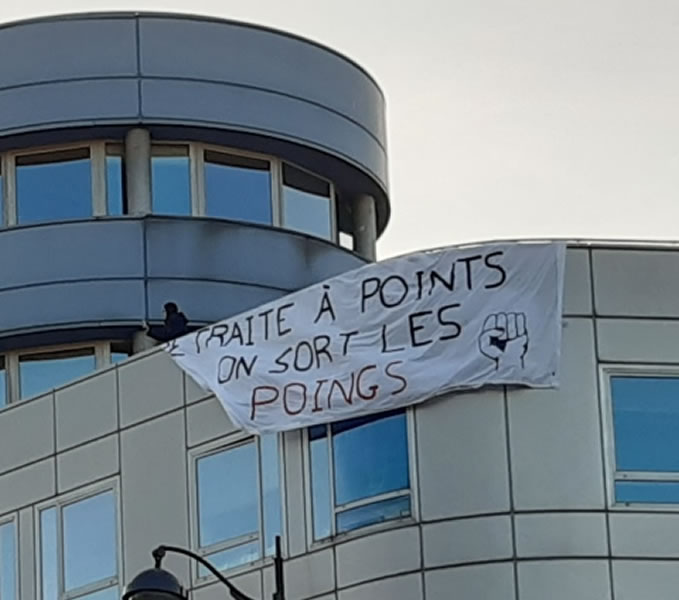 RETRAITE À POINTS
ON SORT LES
POINGS